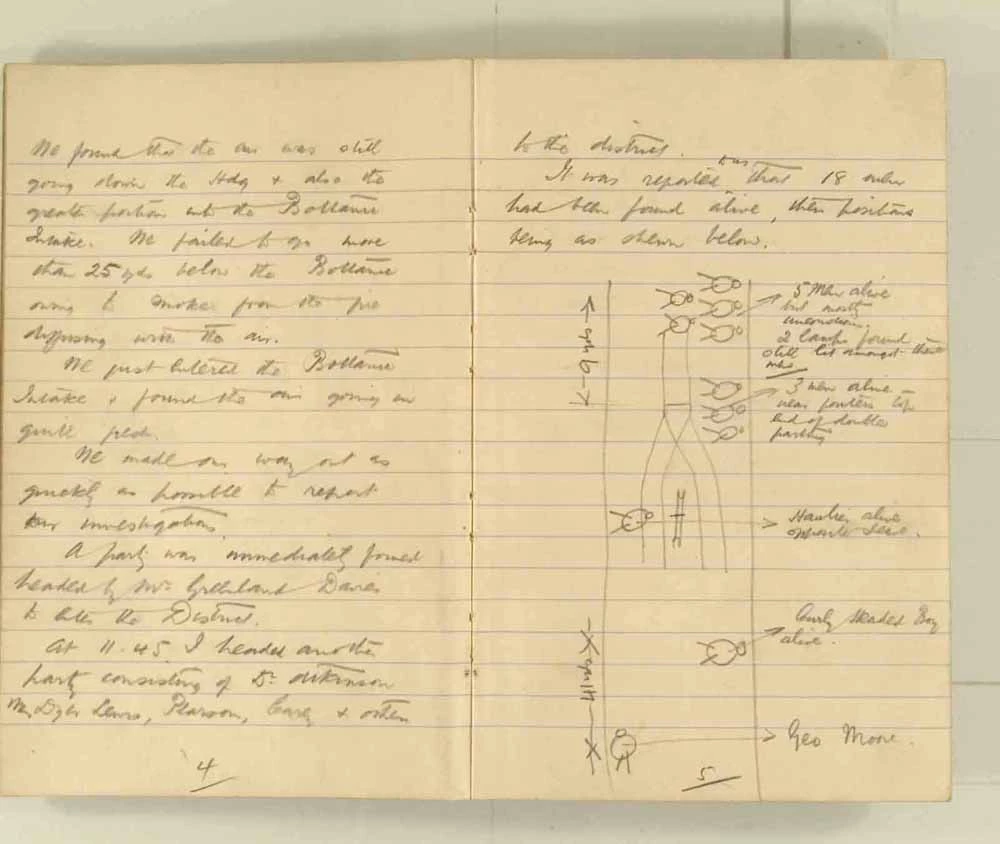 We found that the air was still
going down the Hdg & also the
greater portion into the Bottanic
Intake. We failed to go more
than 25 yds below the Bottanic
owing to smoke from the fire
diffusing with the air.
We just entered the Bottanic
Intake & found the air going in
quite fresh.
We made our way out as
quickly as possible to report
our investigations.
A party was immediately formed
headed by Mr Greenland Davies
to enter the District.
At 11.45 I headed another
party consisting of Dr Atkinson
Mr Dyer Lewis, Pearson, Carey & others
4
to the district.
It was reported that 18 men
had been found alive, their positions
being as shewn below.
5 Men alive
but mostly
unconscious
2 lamps found
still lit amongst these
men
3 men alive
near pointers top
end of double
parting
Haulier alive
opposite
Curly Headed Boy
alive.
Geo Moore.
5